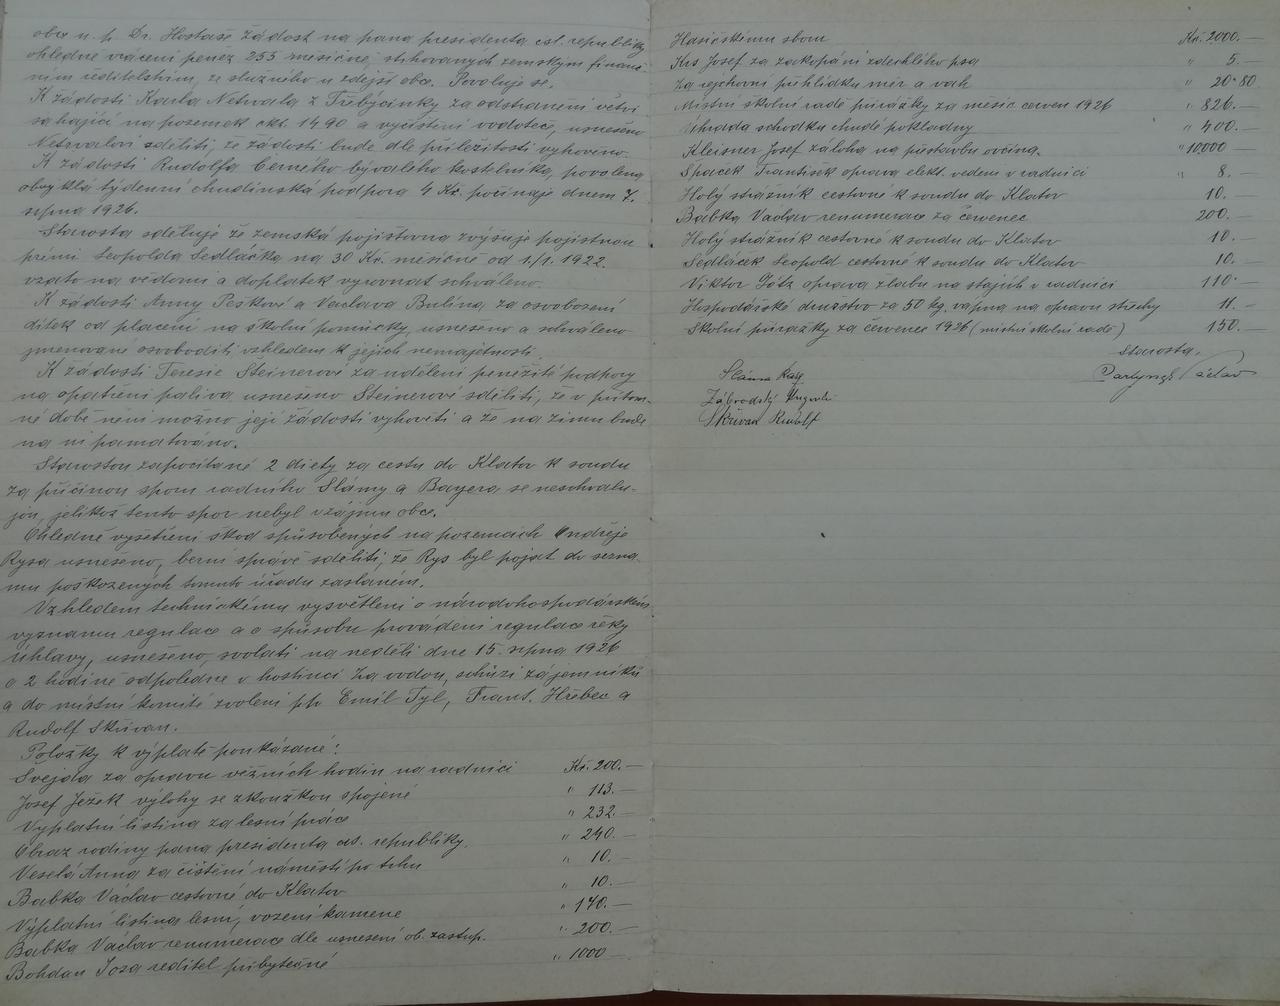 obce u. p. Dr. Hostaše žádost na pana presidenta čsl. republiky
ohledně vrácení peněz 255 měsíčně, stihovaných zemským finanč-
ním ředitelstvím, ze služného u zdejší obce. Povoluje se.
K žádosti Karla Netrvala z Třebýcinky za odstranění větví
sahající na pozemek čkt. 1490 a vyčištění vodoteč, usneseno
Netrvalovi sděliti, že žádosti bude dle příležitosti vyhověno.
K žádosti Rudolfa Černého bývalého kostelníka, povolena
obvyklá týdenní chudinská podpora 4 Kč. počínaje dnem 7.
srpna 1926.
Starosta sděluje že zemská pojišťovna zvyšuje pojistnou
prémii Leopolda Sedláčka na 30 Kč. měsíčně od 1./1. 1922.
vzato na vědomí a doplatek vyrovnat schváleno.
K žádosti Anny Peškové a Václava Bulína, za osvobození
dítek od placení na školní pomůcky, usneseno a schváleno
jmenované osvoboditi vzhledem k jejich nemajetnosti.
K žádosti Teresie Steinerové za udělení peněžité podpory
na opatření paliva usneseno Steinerové sděliti, že v přítom-
né době není možno její žádosti vyhověti a že na zimu bude
na ní pamatováno.
Starostou započítané 2 diety za cestu do Klatov k soudu
za příčinou sporu radního Slámy a Bayera se neschvalu-
jou, jelikož tento spor nebyl v zájmu obce.
Ohledně vyšetření škod způsobených na pozemcích Ondřeje
Rysa usneseno, berní správě sděliti, že Rys byl pojat do sezna-
mu poškozených tomuto úřadu zaslaném.
Vzhledem technickému vysvětlení o národohospodářském
významu regulace a o spůsobu provádění regulace řeky
Úhlavy, usneseno, svolati na neděli dne 15. srpna 1926
o 2 hodině odpoledne v hostinci Za vodou, schůzi zájemníků
a do místní komité zvoleni pp. Emil Tyl, Frant. Hřebec a
Rudolf Skřivan.
Položky k výplatě poukázané:
Svejda za opravu věžních hodin na radnici Kč. 200.—
Josef Ježek výlohy se zkouškou spojené " 113.—
Výplatní listina za lesní práce " 232.—
Obraz rodiny pana presidenta čs. republiky. " 240.—
Veselá Anna za čištění náměstí po trhu " 10.—
Babka Václav cestovné do Klatov " 10.—
Výplatní listina lesní, vození kamene " 140.—
Babka Václav renumerace dle usnesení ob. zastup. " 200.—
Bohdan Joza ředitel příbytečné " 1000
Hasičskému sboru Kč. 2000.—
Krs Josef za zakopání zdechlého psa " 5.—
Za cejchovní přehlídku měr a vah " 20·80
Místní školní radě přirážky za měsíc červen 1926 " 826.—
Úhrada schodku chudé pokladny " 400.—
Kleisner Josef záloha na přestavbu ovčína. " 10,000 —
Špaček František oprava elekt. vedení v radnici " 8.—
Holý strážník cestovné k soudu do Klatov 10.—
Babka Václav renumerace za červenec 200.—
Holý strážník cestovné k soudu do Klatov 10.—
Sedláček Leopold cestovné k soudu do Klatov 10.—
Viktor Götz oprava žlabu na stájích v radnici 110.—
Hospodářské družstvo za 50 kg. vápna na opravu střechy 11.—
Školní přirážky za červenec 1926 (místní školní radě) 150.—
Starosta,
Sláma Kar. Václav
Závrodský
Skřivan Rudolf